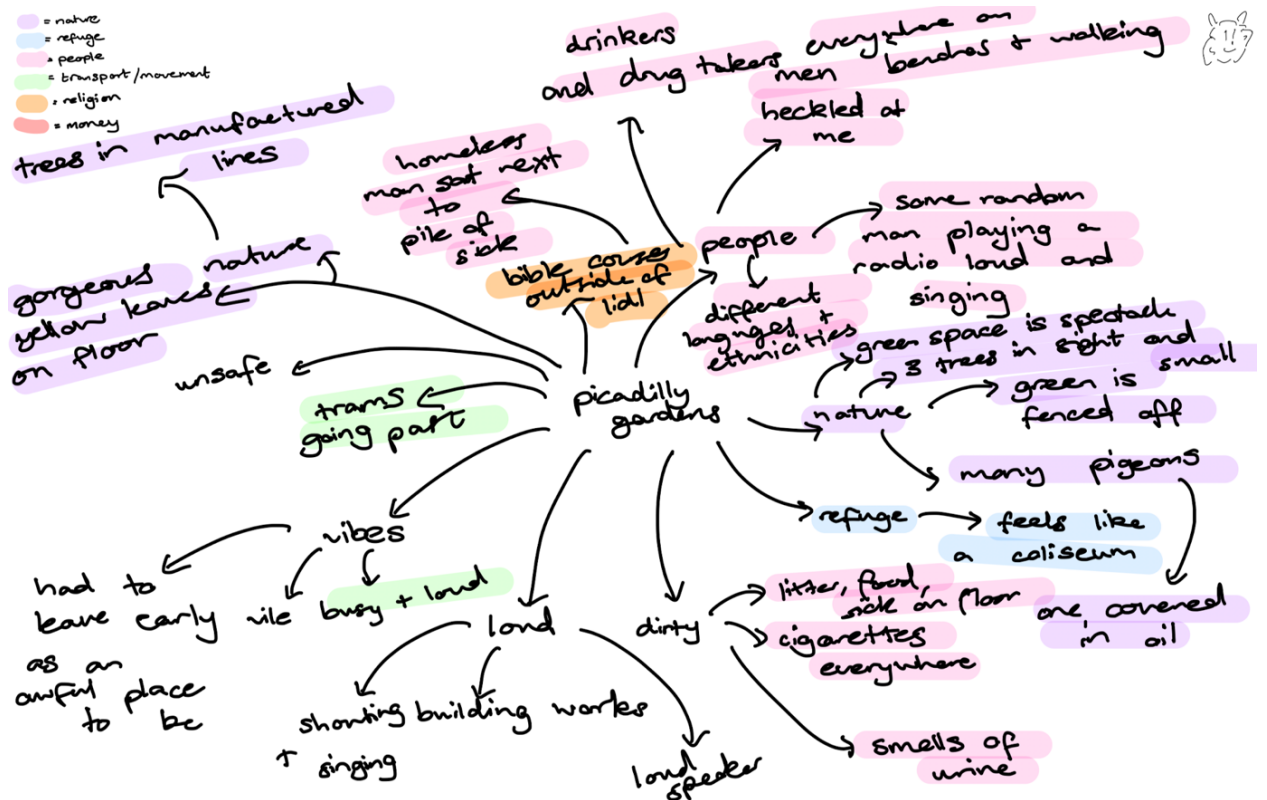 = nature
= refuge
= people
= transport/movement
= religion
= money
trees in manufactured
lines
nature
gorgeous
yellow leaves
on floor
unsafe
trams
going past
homeless
man sat next
to
pile of
sick
bible
outside of
lidl
drinkers
and drug takers
everywhere on
benches + walking
men
heckled at
me
people
some random
man playing a
radio loud and
singing
different
+
ethnicities
picadilly
gardens
nature
green space is
3 trees in sight and
small
green is
fenced off
many pigeons
one covered
in oil
refuge
feels like
a coliseum
vibes
had to
leave early
as an
awful place
to be
vile
busy + loud
loud
shouting
+ singing
building works
loud
speaker
dirty
litter, food,
sick on floor
cigarettes
everywhere
smells of
urine